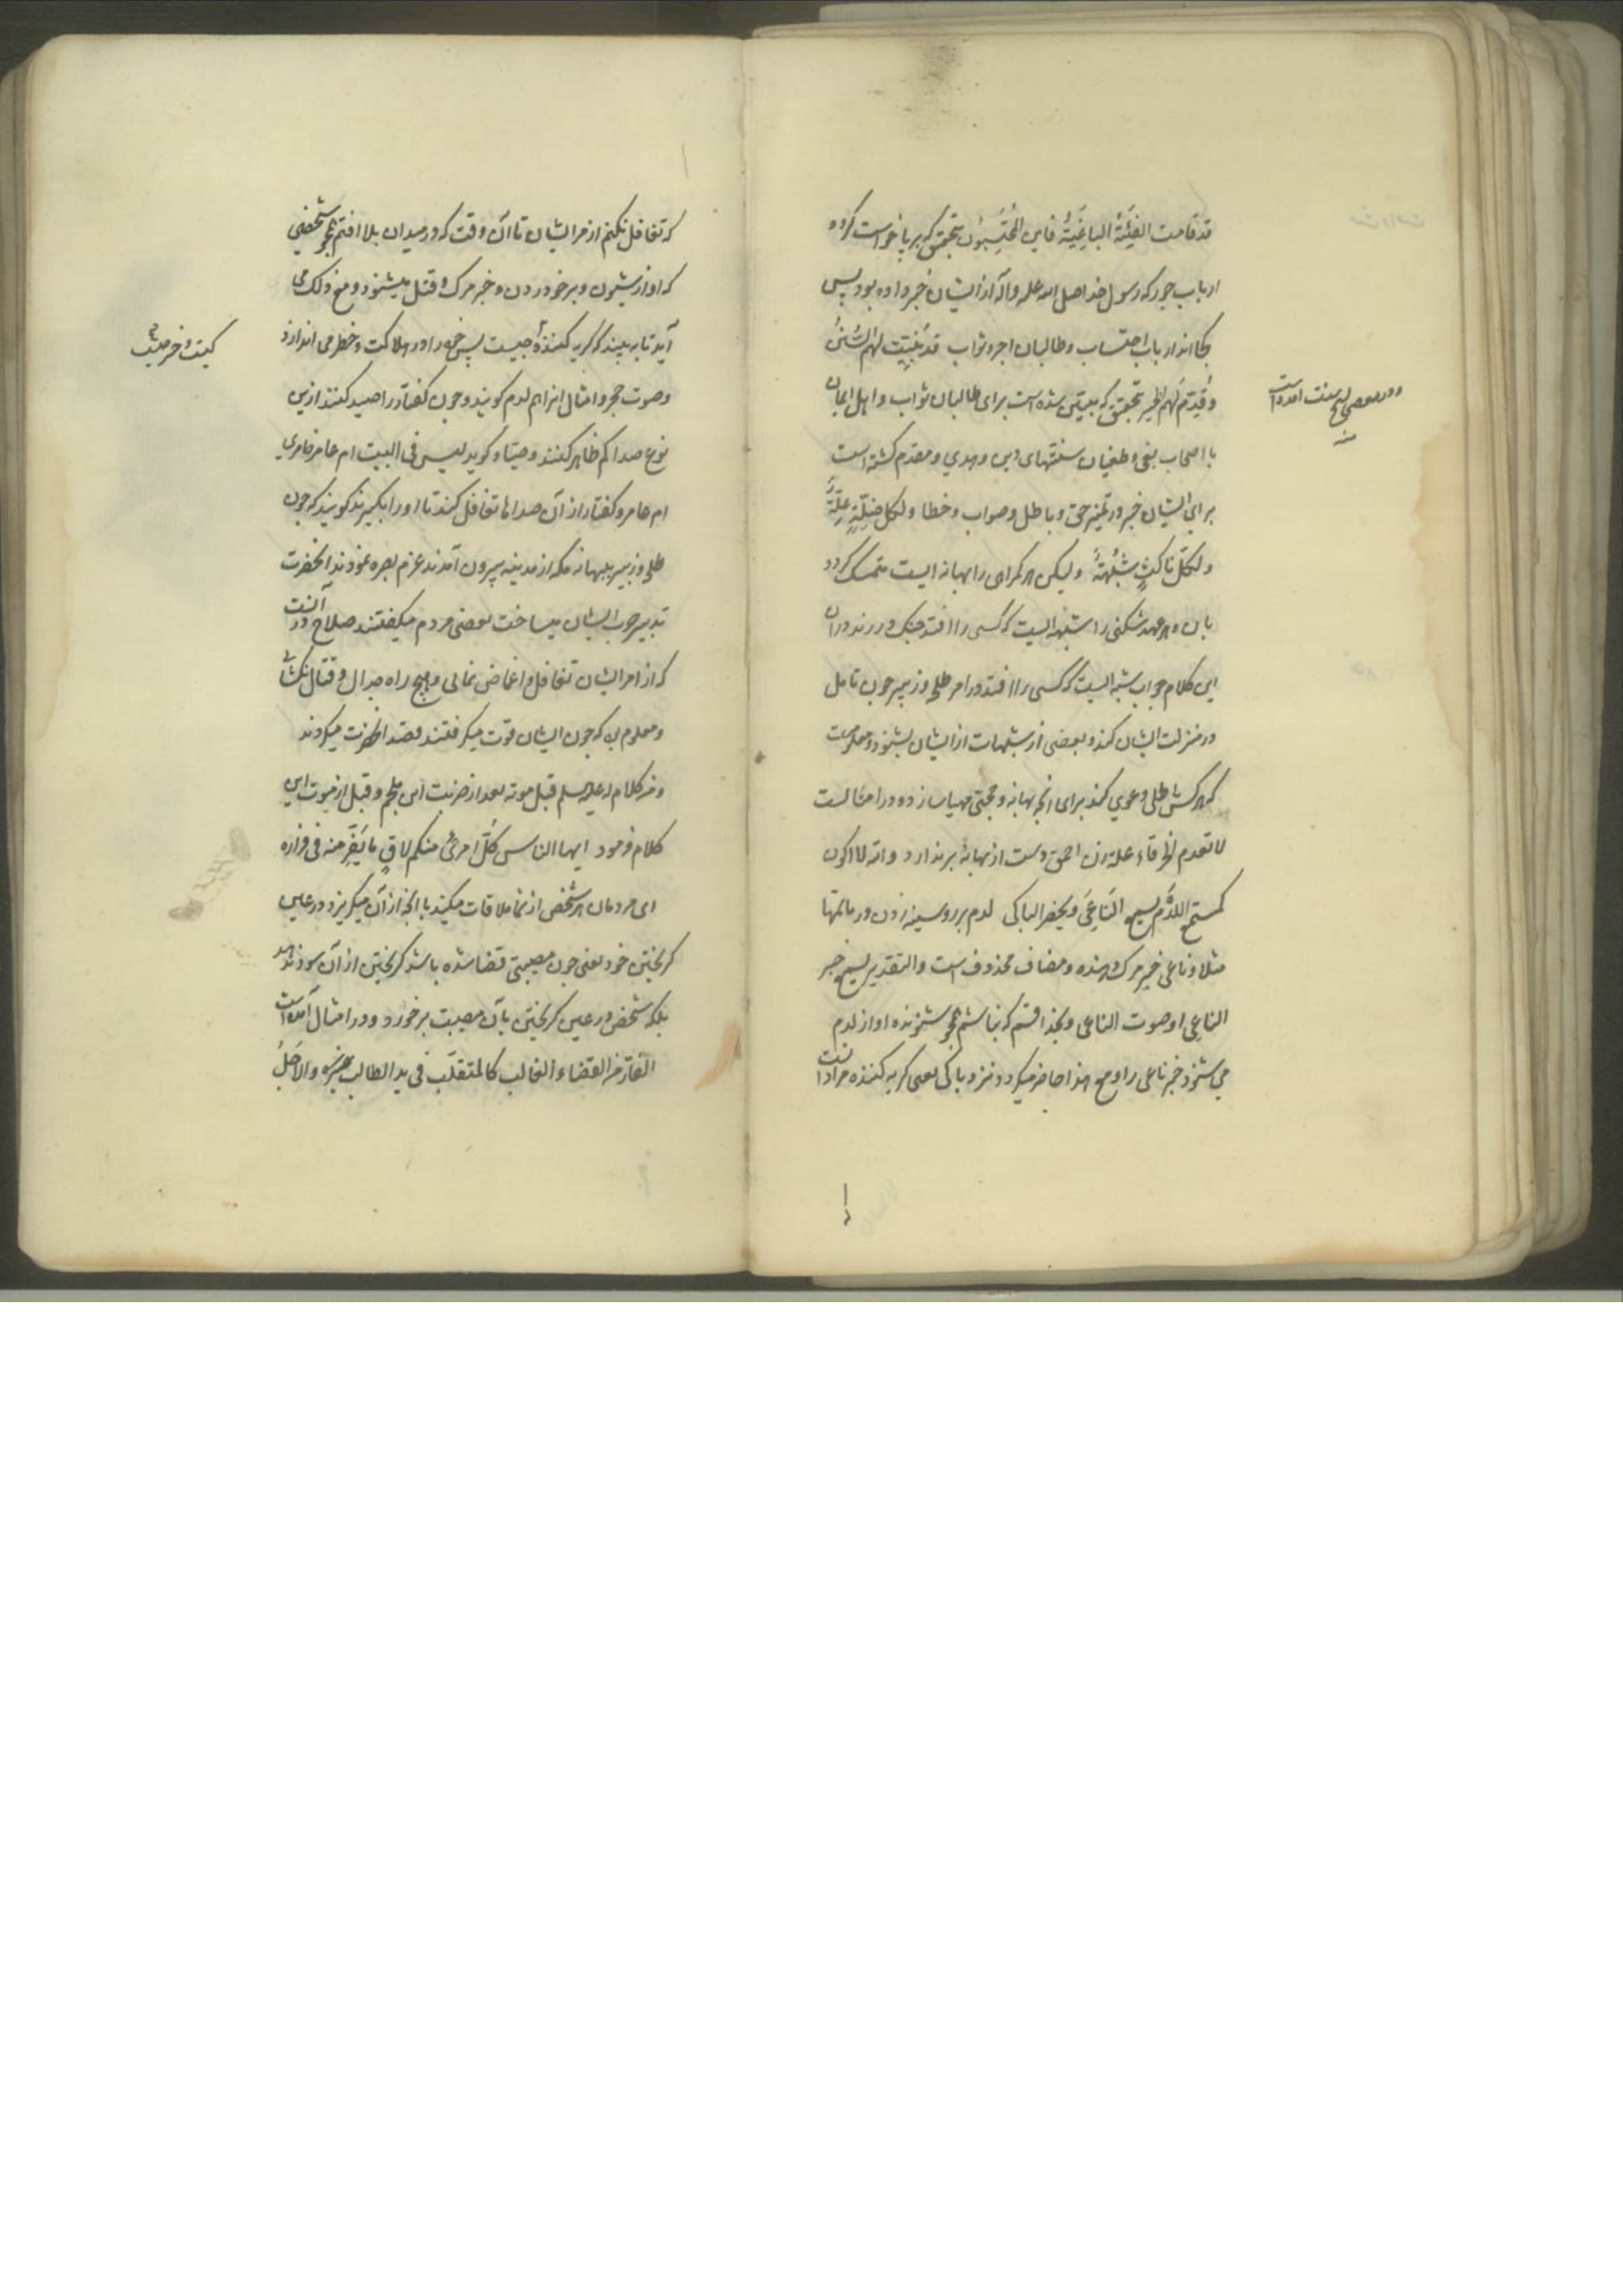 قد قامت الفئة الباغیة فاین المحتسبون بتحقیق که برپا خواست گروه
ارباب جور که رسول خدا صلی الله علیه وآله از ایشان خبر داده بود پس
کجا اند ارباب احتساب وطالبان اجر وثواب قد بینت لهم السنن
وقدم لهم الخبر بتحقیق که مبین شده است برای طالبان ثواب واهل ایمان
با اصحاب بغی وطغیان سنتهای دین وهدی ومقدم گشته است
برای ایشان خبر در تمیز حق وباطل وصواب وخطا ولکل ضلة علة
ولکل ناکث شبهة ولیکن هر گمراهی را بهانه ایست متمسک گردد
بان وهر عهد شکنی را شبهه ایست که کسی را افتد جنک ورزند دران
این کلام جواب شبه ایست که کسی را افتد در امر طلحه وزبیر چون تامل
در منزلت ایشان کند وبعضی از شبهات از ایشان بشنود ومعلومست
که هرکس باطلی دعوی کند برای انچه بهانه وحجتی مهیا سازد ودر امثالست
لا تعدم الخرقاء علة زن احمق دست از بهانه برندارد والله لا اکون
کمستمع اللدم یسمع الناعی ویحضر الباکی لدم بر رو وسینه زدن در ماتمها
مثلا وناعی خبر مرک دهنده ومضاف محذوف است والتقدیر یسمع خبر
الناعی او صوت الناعی وبخدا قسم که نباشم همچو شنونده اواز لدم
می شنود خبر ناعی را ومع هذا حاضر میکردد نزد باکی یعنی کریه کننده مراد انست
ودر بعضی نسخ سنت امده است
منه
که تغافل نکنم از مر ایشان تا آن وقت که در میدان بلا افتم همچو شخصی
که اواز شیون وبر خود زدن وخبر مرک وقتل میشنود ومع ذلک می
آید تا به بیند که کریه کننده چیست پس خود را در هلاکت وخطر می اندازد
وصوت حجر وامثال انرا هم لدم کویند وچون کفتار را صید کنند ازین
نوع صدا کم ظاهر کنند وصیاد کوید لیس فی البیت ام عامر خامری
ام عامر وکفتار از آن صداها تغافل کند تا اورا بکیرند کویند که چون
طلحه وزبیر به بهانه مکه از مدینه بیرون آمدند عزم بصره نمودند انحضرت
تدبیر حرب ایشان میساخت بعضی مردم میکفتند صلاح در آنست
که از امر ایشان تغافل واغماض نمائی وهیچ راه جدال وقتال نکشا
ومعلوم که چون ایشان قوت میکرفتند قصد انحضرت میکردند
ومن کلام له علیه السلم قبل موته بعد از ضربت ابن ملجم وقبل از موت این
کلام فرمود ایها الناس کل امرئ منکم لاق ما یفر منه فی فراره
ای مردمان هر شخص از شما ملاقات میکند با انچه از آن میکریزد در عین
کریختن خود یعنی چون مصیبتی قضا شده باشد کریختن از آن سود ندهد
بلکه شخص در عین کریختن بآن مصیبت برخورد ودر امثال آمده است
الفار من القضاء الغالب کالمتقلب فی ید الطالب والاجل